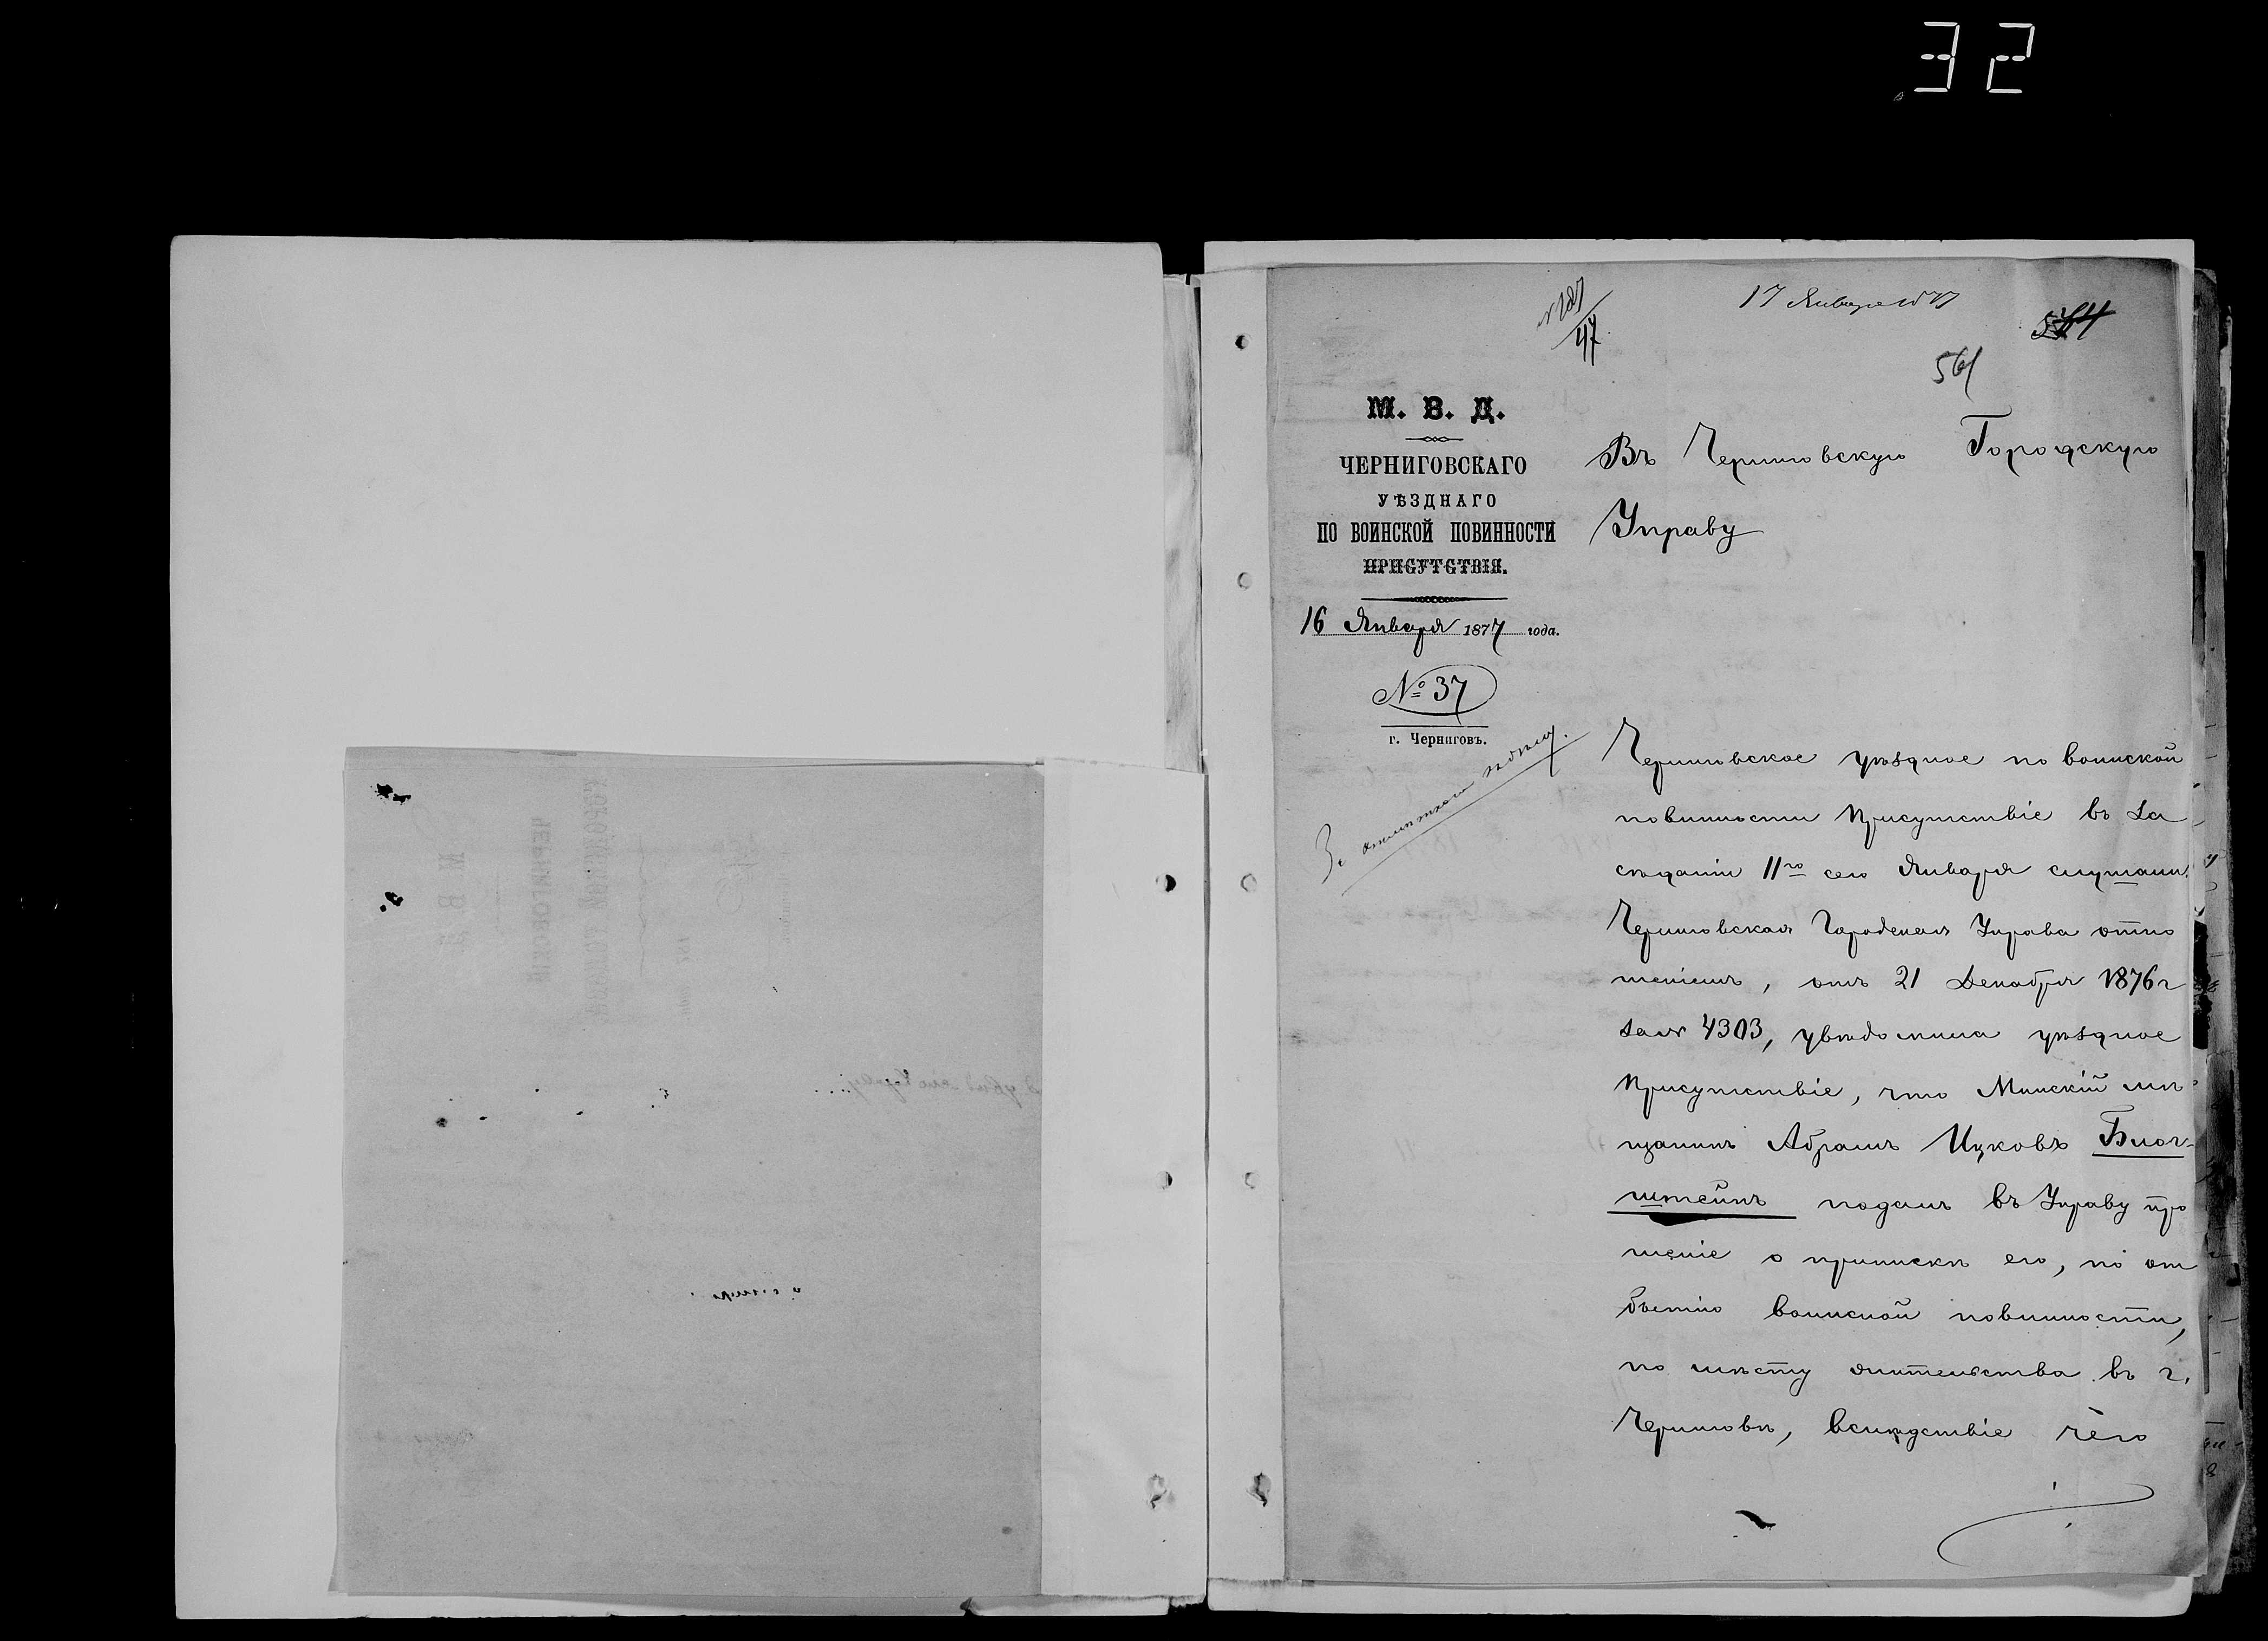 32
17 Января 1877
47
561
М. В. Д.
ЧЕРНИГОВСКАГО
УѢЗДНАГО
ПО ВОИНСКОЙ ПОВИННОСТИ
ПРИСУТСТВІЯ.
16 Января 1877 года.
№ 37
г. Черниговъ.
Въ Черниговскую Городскую
Управу
Черниговское уѣздное по воинской
повинности Присутствіе въ за
сѣданіи 11го сего Января слушали:
Черниговская Городская Управа отно
шеніемъ, отъ 21 Декабря 1876 г
за № 4303, увѣдомила уѣздное
Присутствіе, что Минскій мѣ
щанинъ Абрамъ Ицковъ Блог-
штейнъ подалъ въ Управу про
шеніе о припискѣ его, по от
бытію воинской повинности,
по мѣсту жительства въ г.
Черниговѣ, вслѣдствіе чего